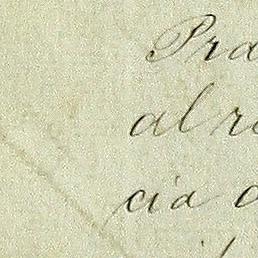 Pra
al r
cia a